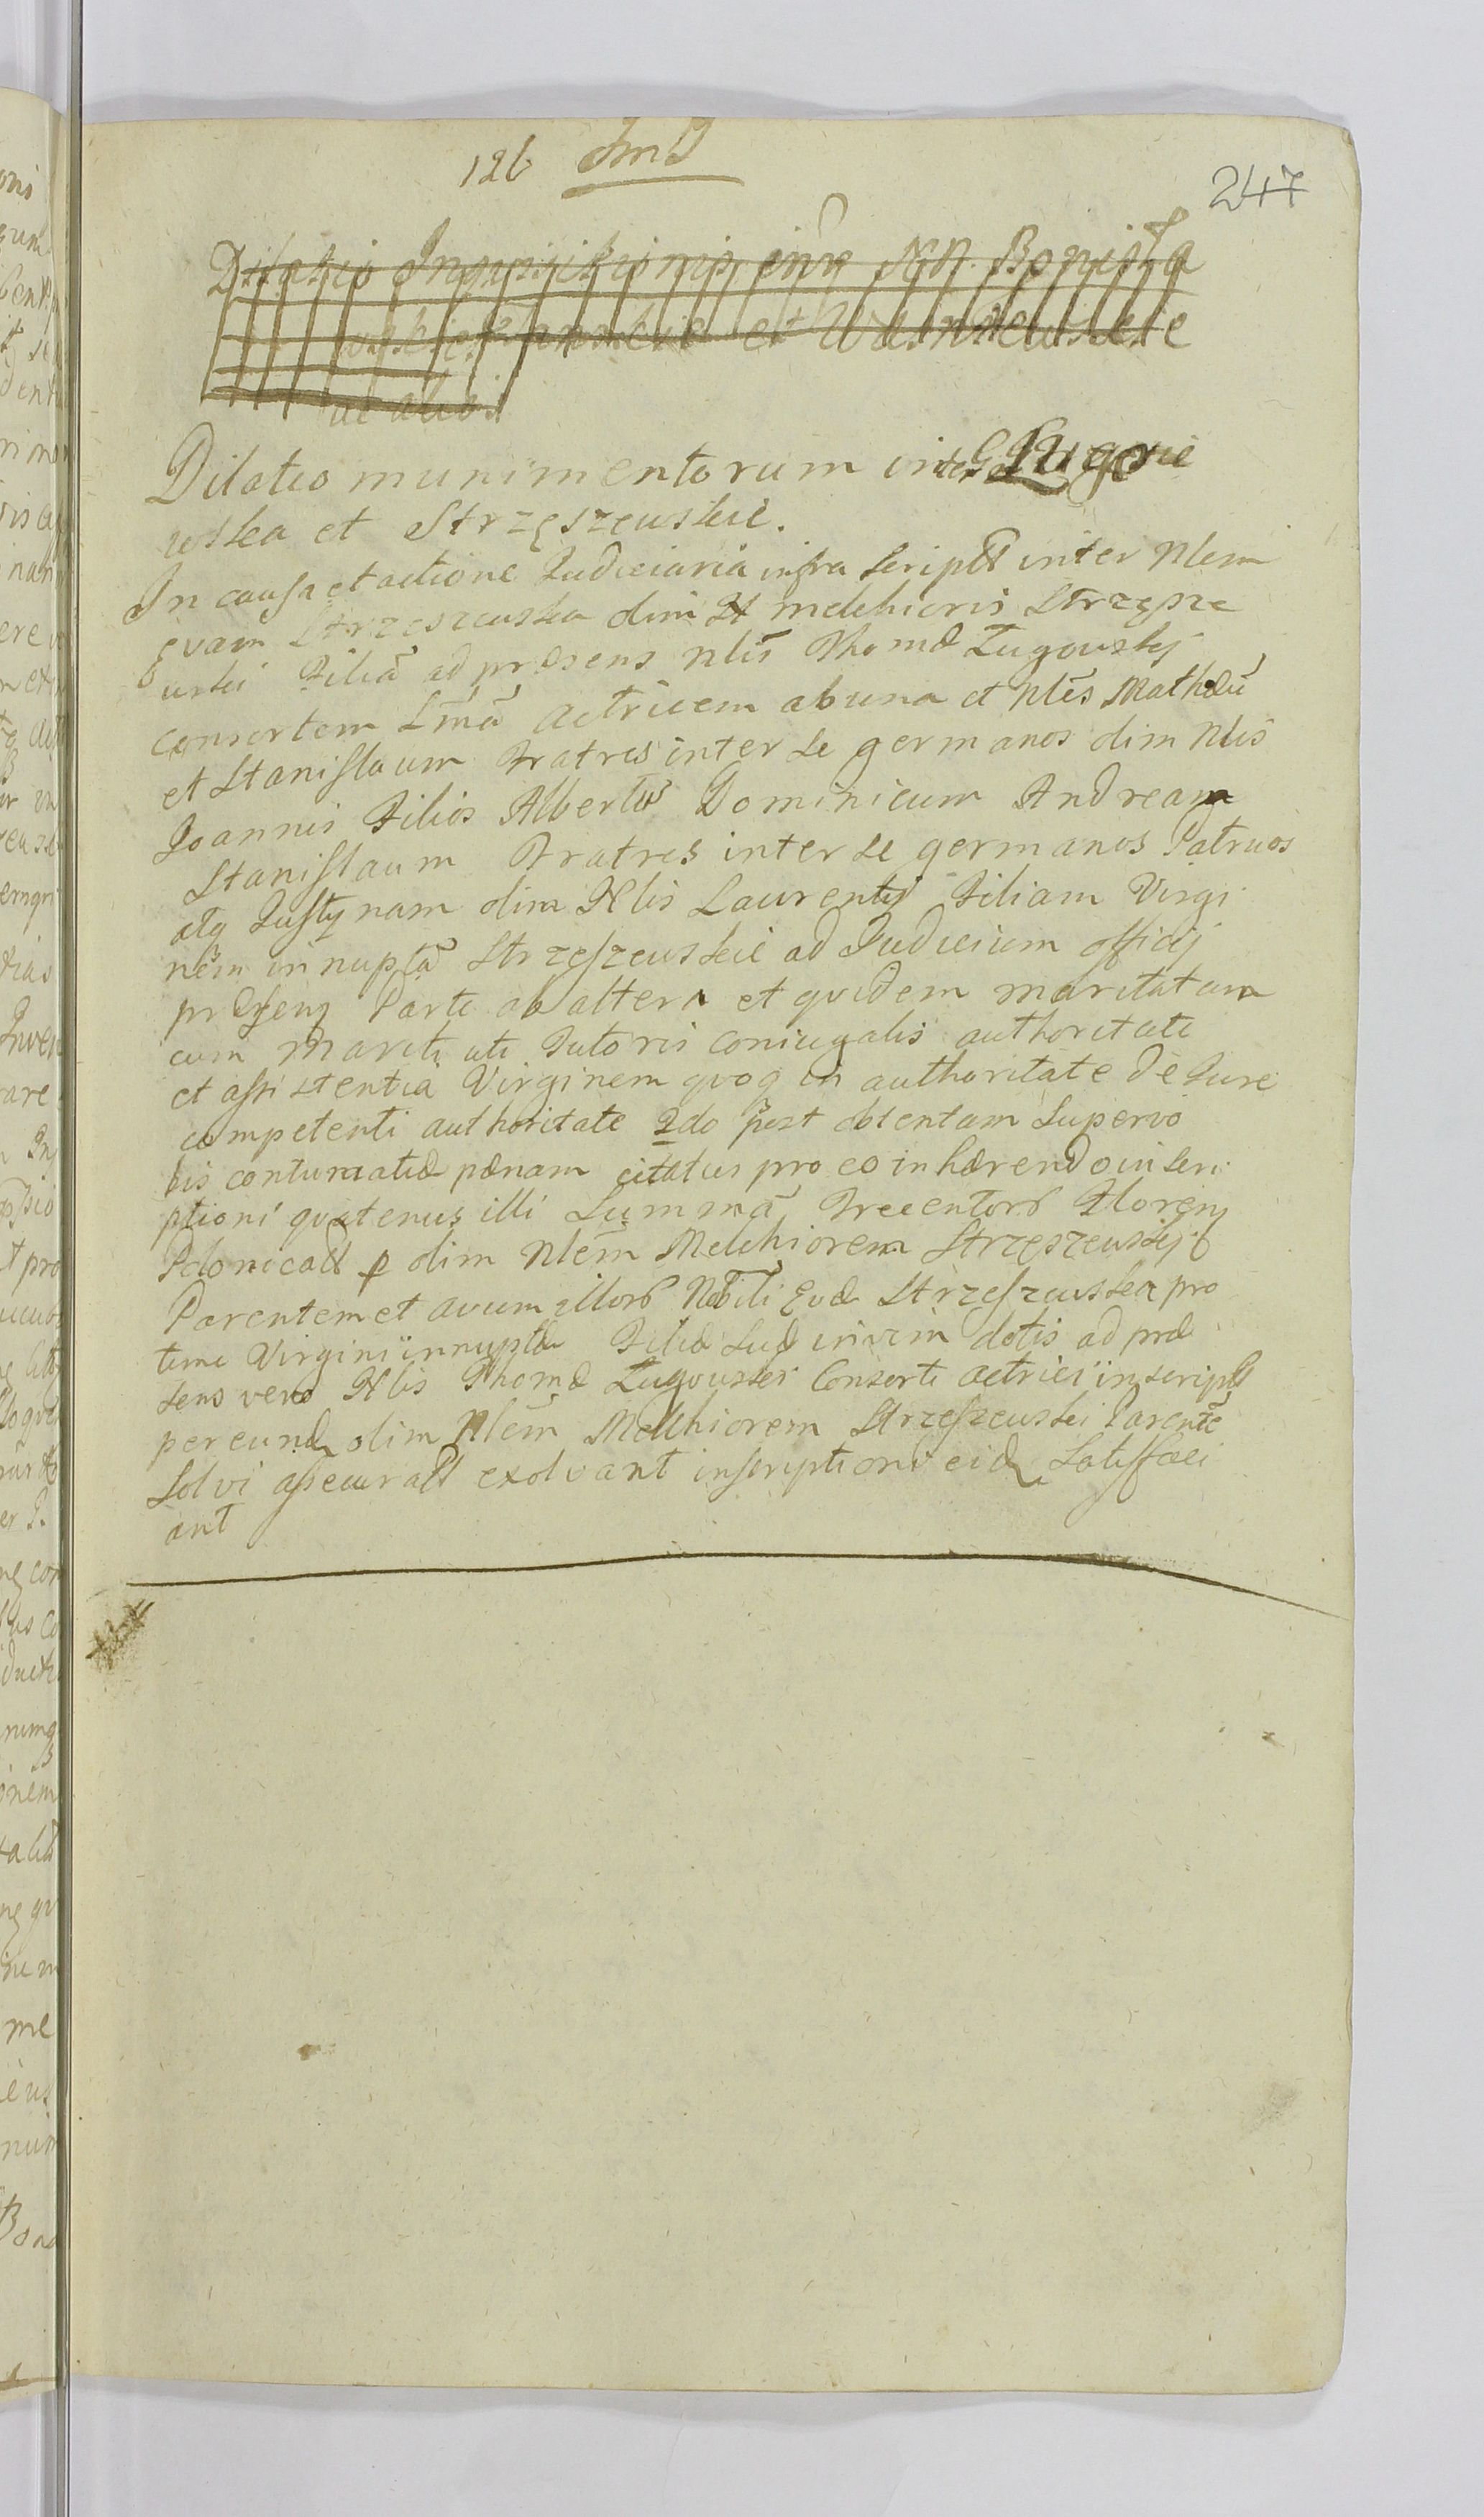 126 ImD
247
Dilatio Inquisitionis intr NN. Bogusla
wskie et Wasniewskie
ac alios
Dilatio munimentorum inter GG Lugow
wska et Strzęszewskie.
In causa et actione Judiciaria infra script inter Nlem
Evam Strzeszewska olim N Melchioris Strzęsze
wski Filiā ad præsens Nlis Thomæ Ługowskij
consortem Lmā actricem ab una et Nles Mathæū
et Stanislaum Fratres inter se germanos olim Nlis
Joannis Filios Albertū Dominicum Andream
Stanislaum Fratres inter se germanos Patruos
atq Justynam olim Nlis Laurentij Filiam Virgi
nēm innuptā Strzeszewskie ad Judicium officij
præsens Parte ab altera et quidem maritatam
cum Mariti uti Tutoris coniugalis authoritate
et assistentia Virginem quoq in authoritate de Jure
competenti authoritate 2do post obtentam superio
ris contumatiæ pœnam citatus pro eo inhærendo inscri
ptioni quatenus illi Summā Trecentorƀ Floren
Polonicall p olim Nlēm Melchiorem Strzęszewskij
Parentem et avum illorƀ Nobili Evæ Strzeszewska pro
tunc Virgini innuptæ Filiæ suæ in vim dotis ad præ
sens vero Nlis Thomæ Ługowski Consorti actrici inscript
per eund olim Nlēm Melchiorem Strzeszewski Parentē
solvi assecurall exolvant inscriptioni eid satisfaci
ant